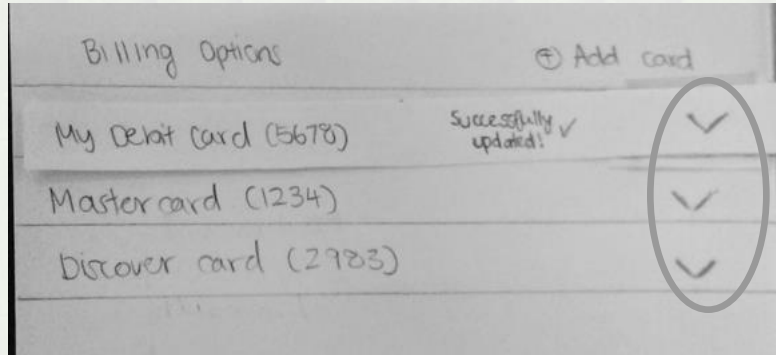 Billing Options
⊕ Add card
My Debit Card (5678)
Successfully
updated! ✓
Mastercard (1234)
Discover card (2983)